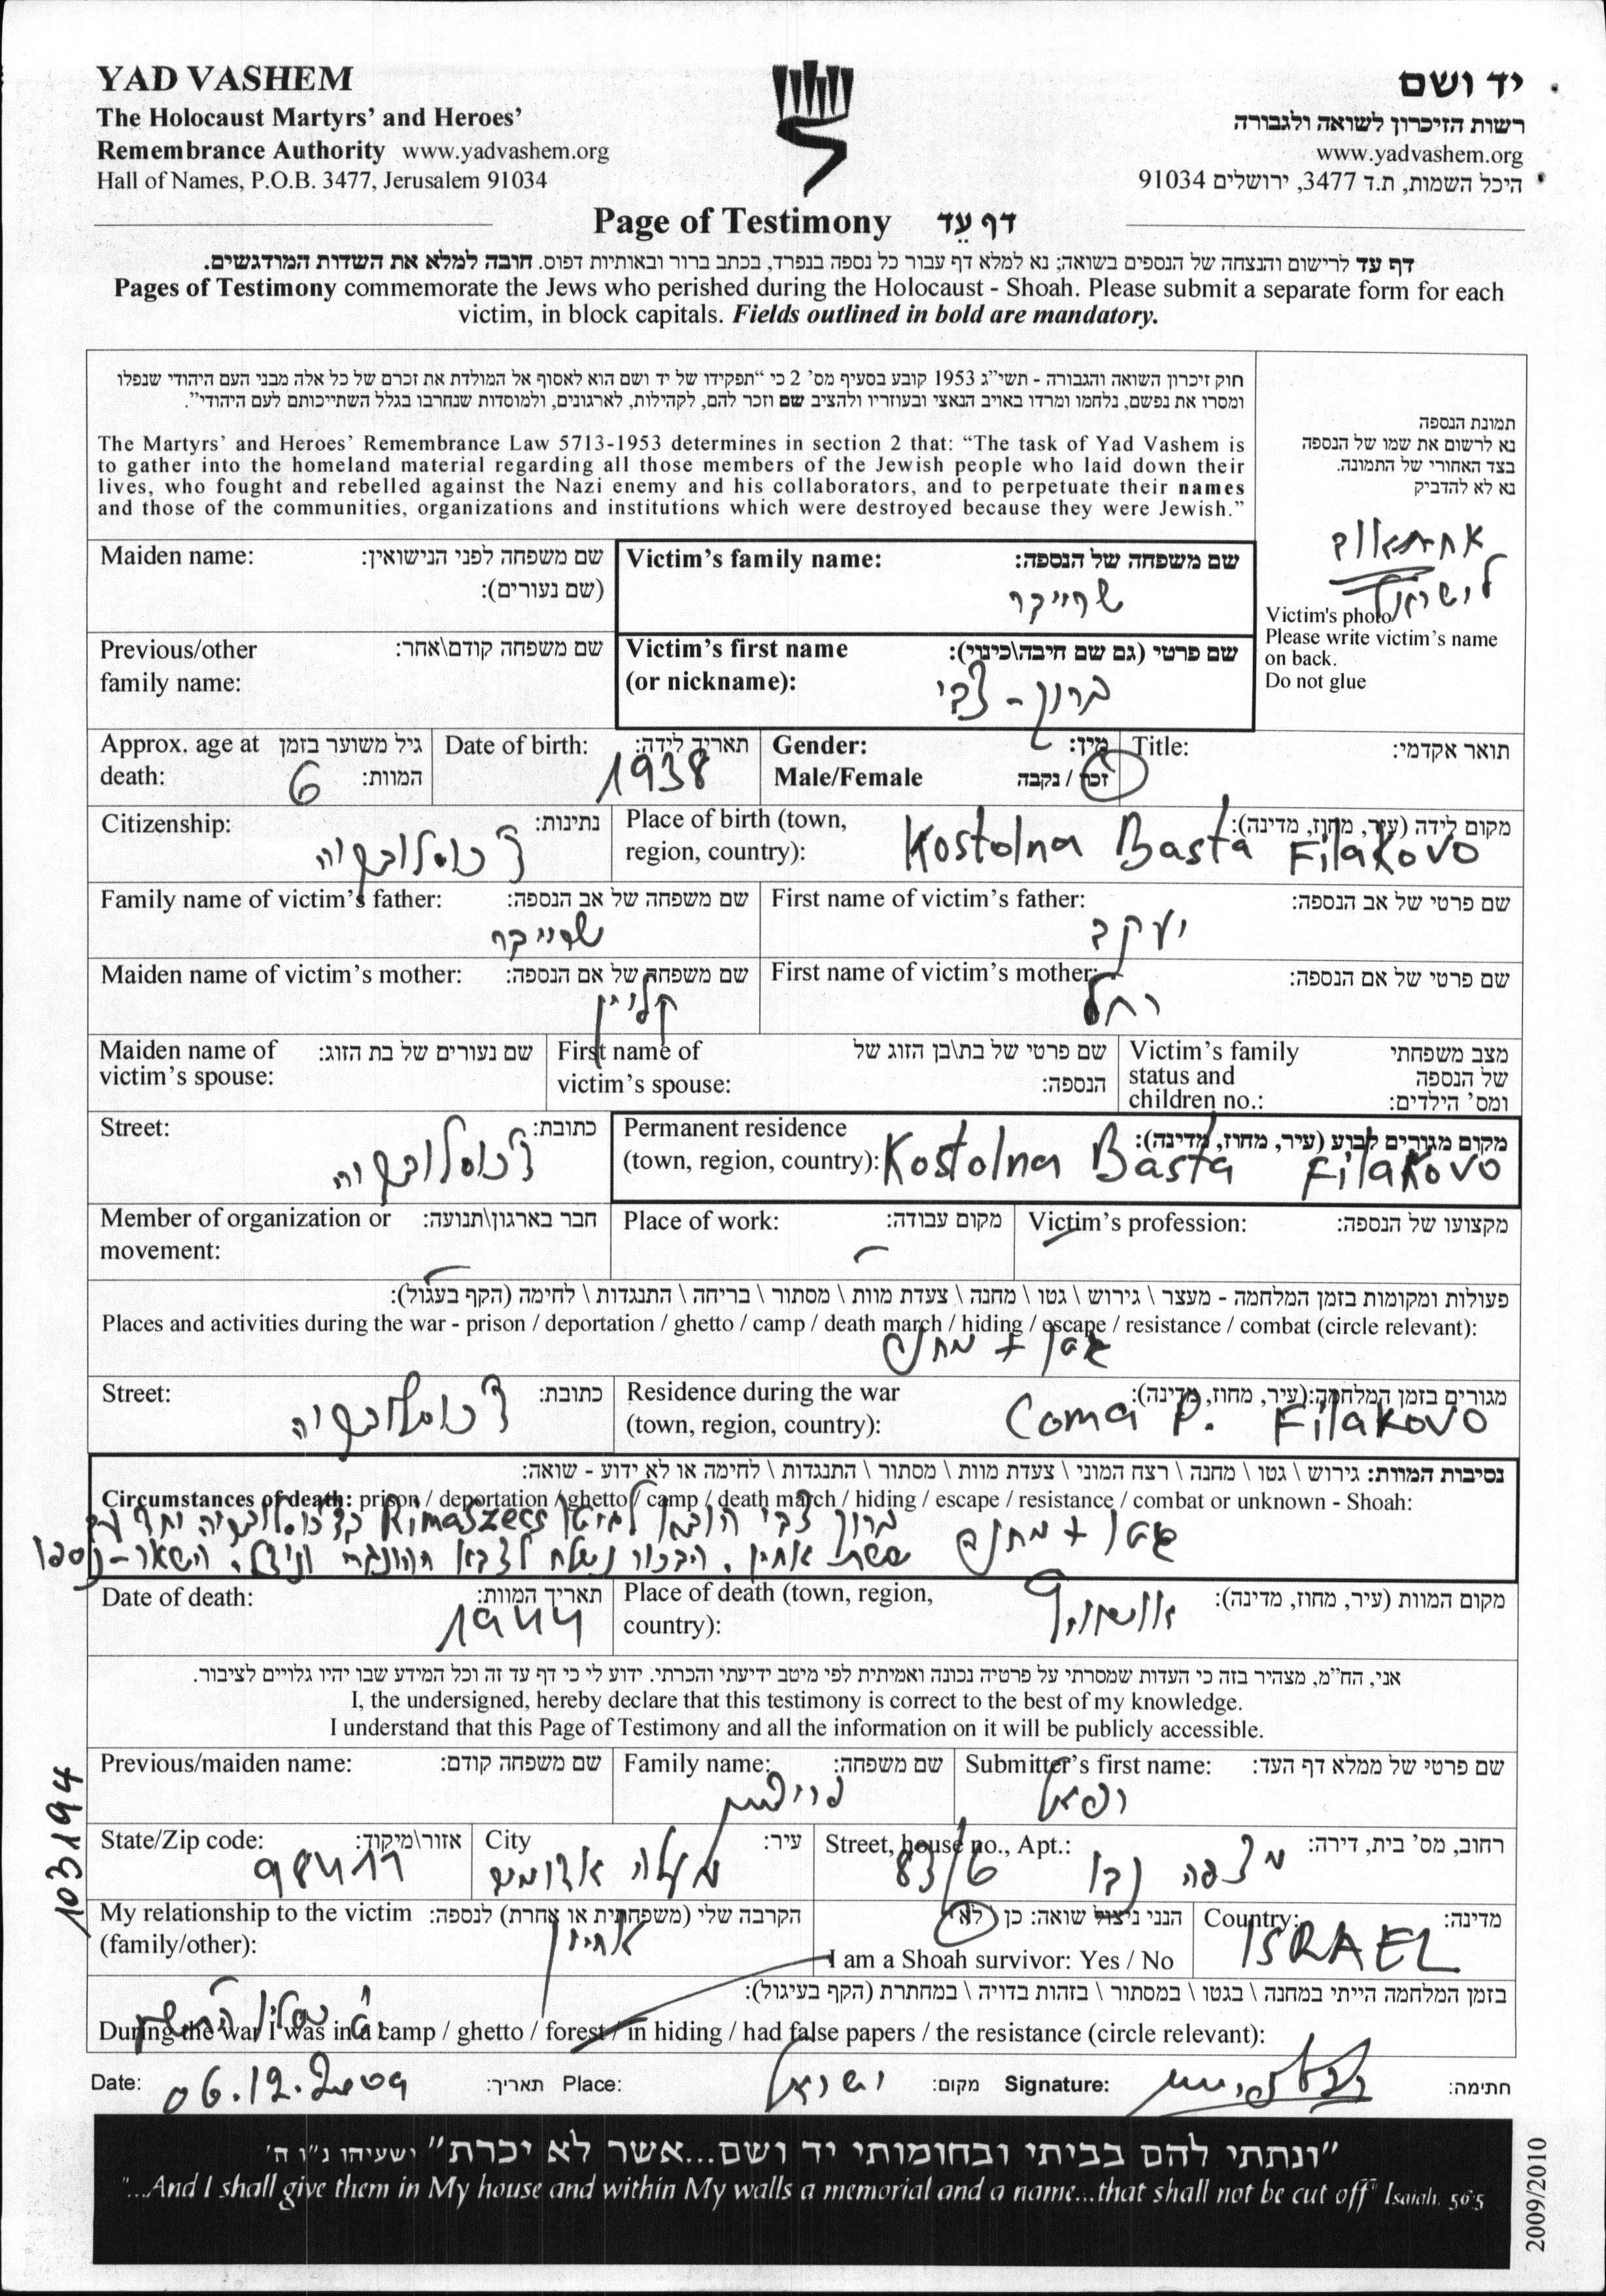 YAD VASHEM
The Holocaust Martyrs' and Heroes'
Remembrance Authority www.yadvashem.org
Hall of Names, P.O.B. 3477, Jerusalem 91034
יד ושם
רשות הזיכרון לשואה ולגבורה
www.yadvashem.org
היכל השמות, ת.ד 3477, ירושלים 91034
Page of Testimony דף עד
דף עד לרישום והנצחה של הנספים בשואה; נא למלא דף עבור כל נספה בנפרד, בכתב ברור ובאותיות דפוס. חובה למלא את השדות המודגשים.
Pages of Testimony commemorate the Jews who perished during the Holocaust - Shoah. Please submit a separate form for each
victim, in block capitals. Fields outlined in bold are mandatory.
חוק זיכרון השואה והגבורה - תשי"ג 1953 קובע בסעיף מס' 2 כי "תפקידו של יד ושם הוא לאסוף אל המולדת את זכרם של כל אלה מבני העם היהודי שנפלו
ומסרו את נפשם, נלחמו ומרדו באויב הנאצי ובעוזריו ולהציב שם וזכר להם, לקהילות, לארגונים, ולמוסדות שנחרבו בגלל השתייכותם לעם היהודי".
The Martyrs' and Heroes' Remembrance Law 5713-1953 determines in section 2 that: "The task of Yad Vashem is
to gather into the homeland material regarding all those members of the Jewish people who laid down their
lives, who fought and rebelled against the Nazi enemy and his collaborators, and to perpetuate their names
and those of the communities, organizations and institutions which were destroyed because they were Jewish."
תמונת הנספה
נא לרשום את שמו של הנספה
בצד האחורי של התמונה.
נא לא להדביק
Victim's photo
Please write victim's name
on back.
Do not glue
Maiden name: שם משפחה לפני הנישואין:
(שם נעורים):
Victim's family name: שם משפחה של הנספה:
שרייבר
Previous/other שם משפחה קודם\אחר:
family name:
Victim's first name שם פרטי (גם שם חיבה\כינוי):
(or nickname): ברוך - צבי
Approx. age at גיל משוער בזמן
death: המוות: 6
Date of birth: תאריך לידה:
1938
Gender: מין:
Male/Female זכר / נקבה
Title: תואר אקדמי:
Citizenship: נתינות:
צ'כוסלובקיה
Place of birth (town, מקום לידה (עיר, מחוז, מדינה):
region, country): Kostolna Basta Filakovo
Family name of victim's father: שם משפחה של אב הנספה:
שרייבר
First name of victim's father: שם פרטי של אב הנספה:
יעקב
Maiden name of victim's mother: שם משפחה של אם הנספה:
קליין
First name of victim's mother: שם פרטי של אם הנספה:
רחל
Maiden name of שם נעורים של בת הזוג:
victim's spouse:
First name of שם פרטי של בת\בן הזוג של
victim's spouse: הנספה:
Victim's family מצב משפחתי
status and של הנספה
children no.: ומס' הילדים:
Street: כתובת:
צ'כוסלובקיה
Permanent residence מקום מגורים קבוע (עיר, מחוז, מדינה):
(town, region, country): Kostolna Basta Filakovo
Member of organization or חבר בארגון\תנועה:
movement:
Place of work: מקום עבודה:
Victim's profession: מקצועו של הנספה:
פעולות ומקומות בזמן המלחמה - מעצר \ גירוש \ גטו \ מחנה \ צעדת מוות \ מסתור \ בריחה \ התנגדות \ לחימה (הקף בעגול):
Places and activities during the war - prison / deportation / ghetto / camp / death march / hiding / escape / resistance / combat (circle relevant):
גטו + מחנה
Street: כתובת:
צ'כוסלובקיה
Residence during the war מגורים בזמן המלחמה:(עיר, מחוז, מדינה):
(town, region, country): Coma P. Filakovo
נסיבות המוות: גירוש \ גטו \ מחנה \ רצח המוני \ צעדת מוות \ מסתור \ התנגדות \ לחימה או לא ידוע - שואה:
Circumstances of death: prison / deportation / ghetto / camp / death march / hiding / escape / resistance / combat or unknown - Shoah:
גטו + מחנה
ברוך צבי הובא לגיטו Rimaszecs בצ'כוסלובקיה יחד עם
ששת אחיו. הבכור נשלח לצבא ההונגרי וניצל. השאר - נספו
Date of death: תאריך המוות:
1944
Place of death (town, region, מקום המוות (עיר, מחוז, מדינה):
country): אושוויץ
אני, הח"מ, מצהיר בזה כי העדות שמסרתי על פרטיה נכונה ואמיתית לפי מיטב ידיעתי והכרתי. ידוע לי כי דף עד זה וכל המידע שבו יהיו גלויים לציבור.
I, the undersigned, hereby declare that this testimony is correct to the best of my knowledge.
I understand that this Page of Testimony and all the information on it will be publicly accessible.
Previous/maiden name: שם משפחה קודם:
Family name: שם משפחה:
Submitter's first name: שם פרטי של ממלא דף העד:
רפאל
State/Zip code: אזור\מיקוד:
98411
City עיר:
מעלה אדומים
Street, house no., Apt.: רחוב, מס' בית, דירה:
מצפה נבו 83/6
My relationship to the victim הקרבה שלי (משפחתית או אחרת) לנספה:
(family/other): אחיין
הנני ניצול שואה: כן \ לא
I am a Shoah survivor: Yes / No
Country: מדינה:
ISRAEL
בזמן המלחמה הייתי במחנה \ בגטו \ במסתור \ בזהות בדויה \ במחתרת (הקף בעיגול):
During the war I was in a camp / ghetto / forest / in hiding / had false papers / the resistance (circle relevant):
Date: 06.12.2009 תאריך:
Place: ישראל מקום:
Signature: חתימה:
103194
"ונתתי להם בביתי ובחומותי יד ושם...אשר לא יכרת" ישעיהו נ"ו ה'
"...And I shall give them in My house and within My walls a memorial and a name...that shall not be cut off" Isaiah, 56:5
2009/2010